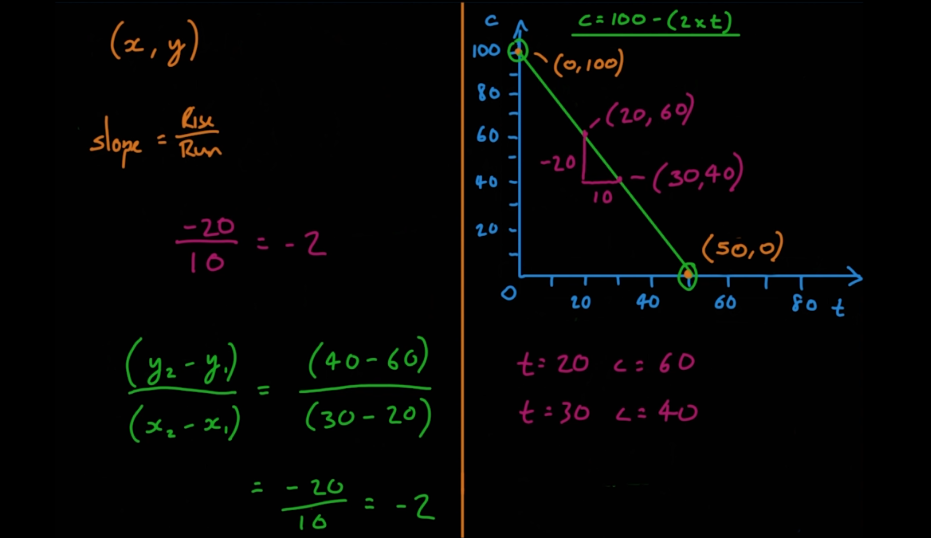 (x, y)
slope = Rise/Run
-20/10 = -2
(y₂ - y₁)/(x₂ - x₁) = (40 - 60)/(30 - 20)
= -20/10 = -2
c = 100 - (2 x t)
c
100
80
60
40
20
0
20 40 60 80 t
(0,100)
(20, 60)
-20
(30,40)
10
(50,0)
t = 20 c = 60
t = 30 c = 40